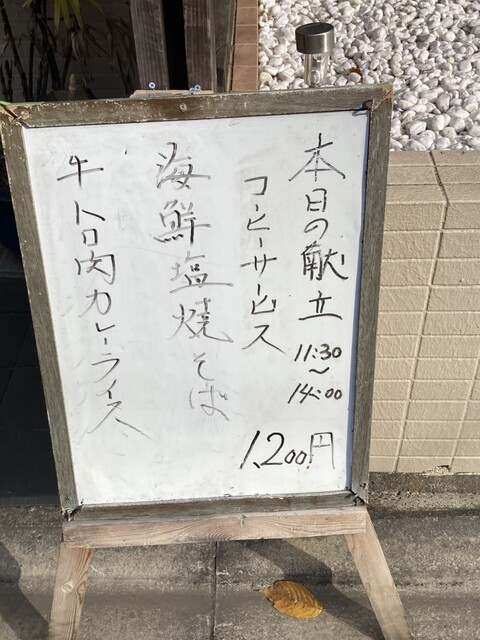 本日の献立
11:30
〜
14:00
コーヒーサービス
1,200円
海鮮塩焼そば
牛トロ肉カレーライス